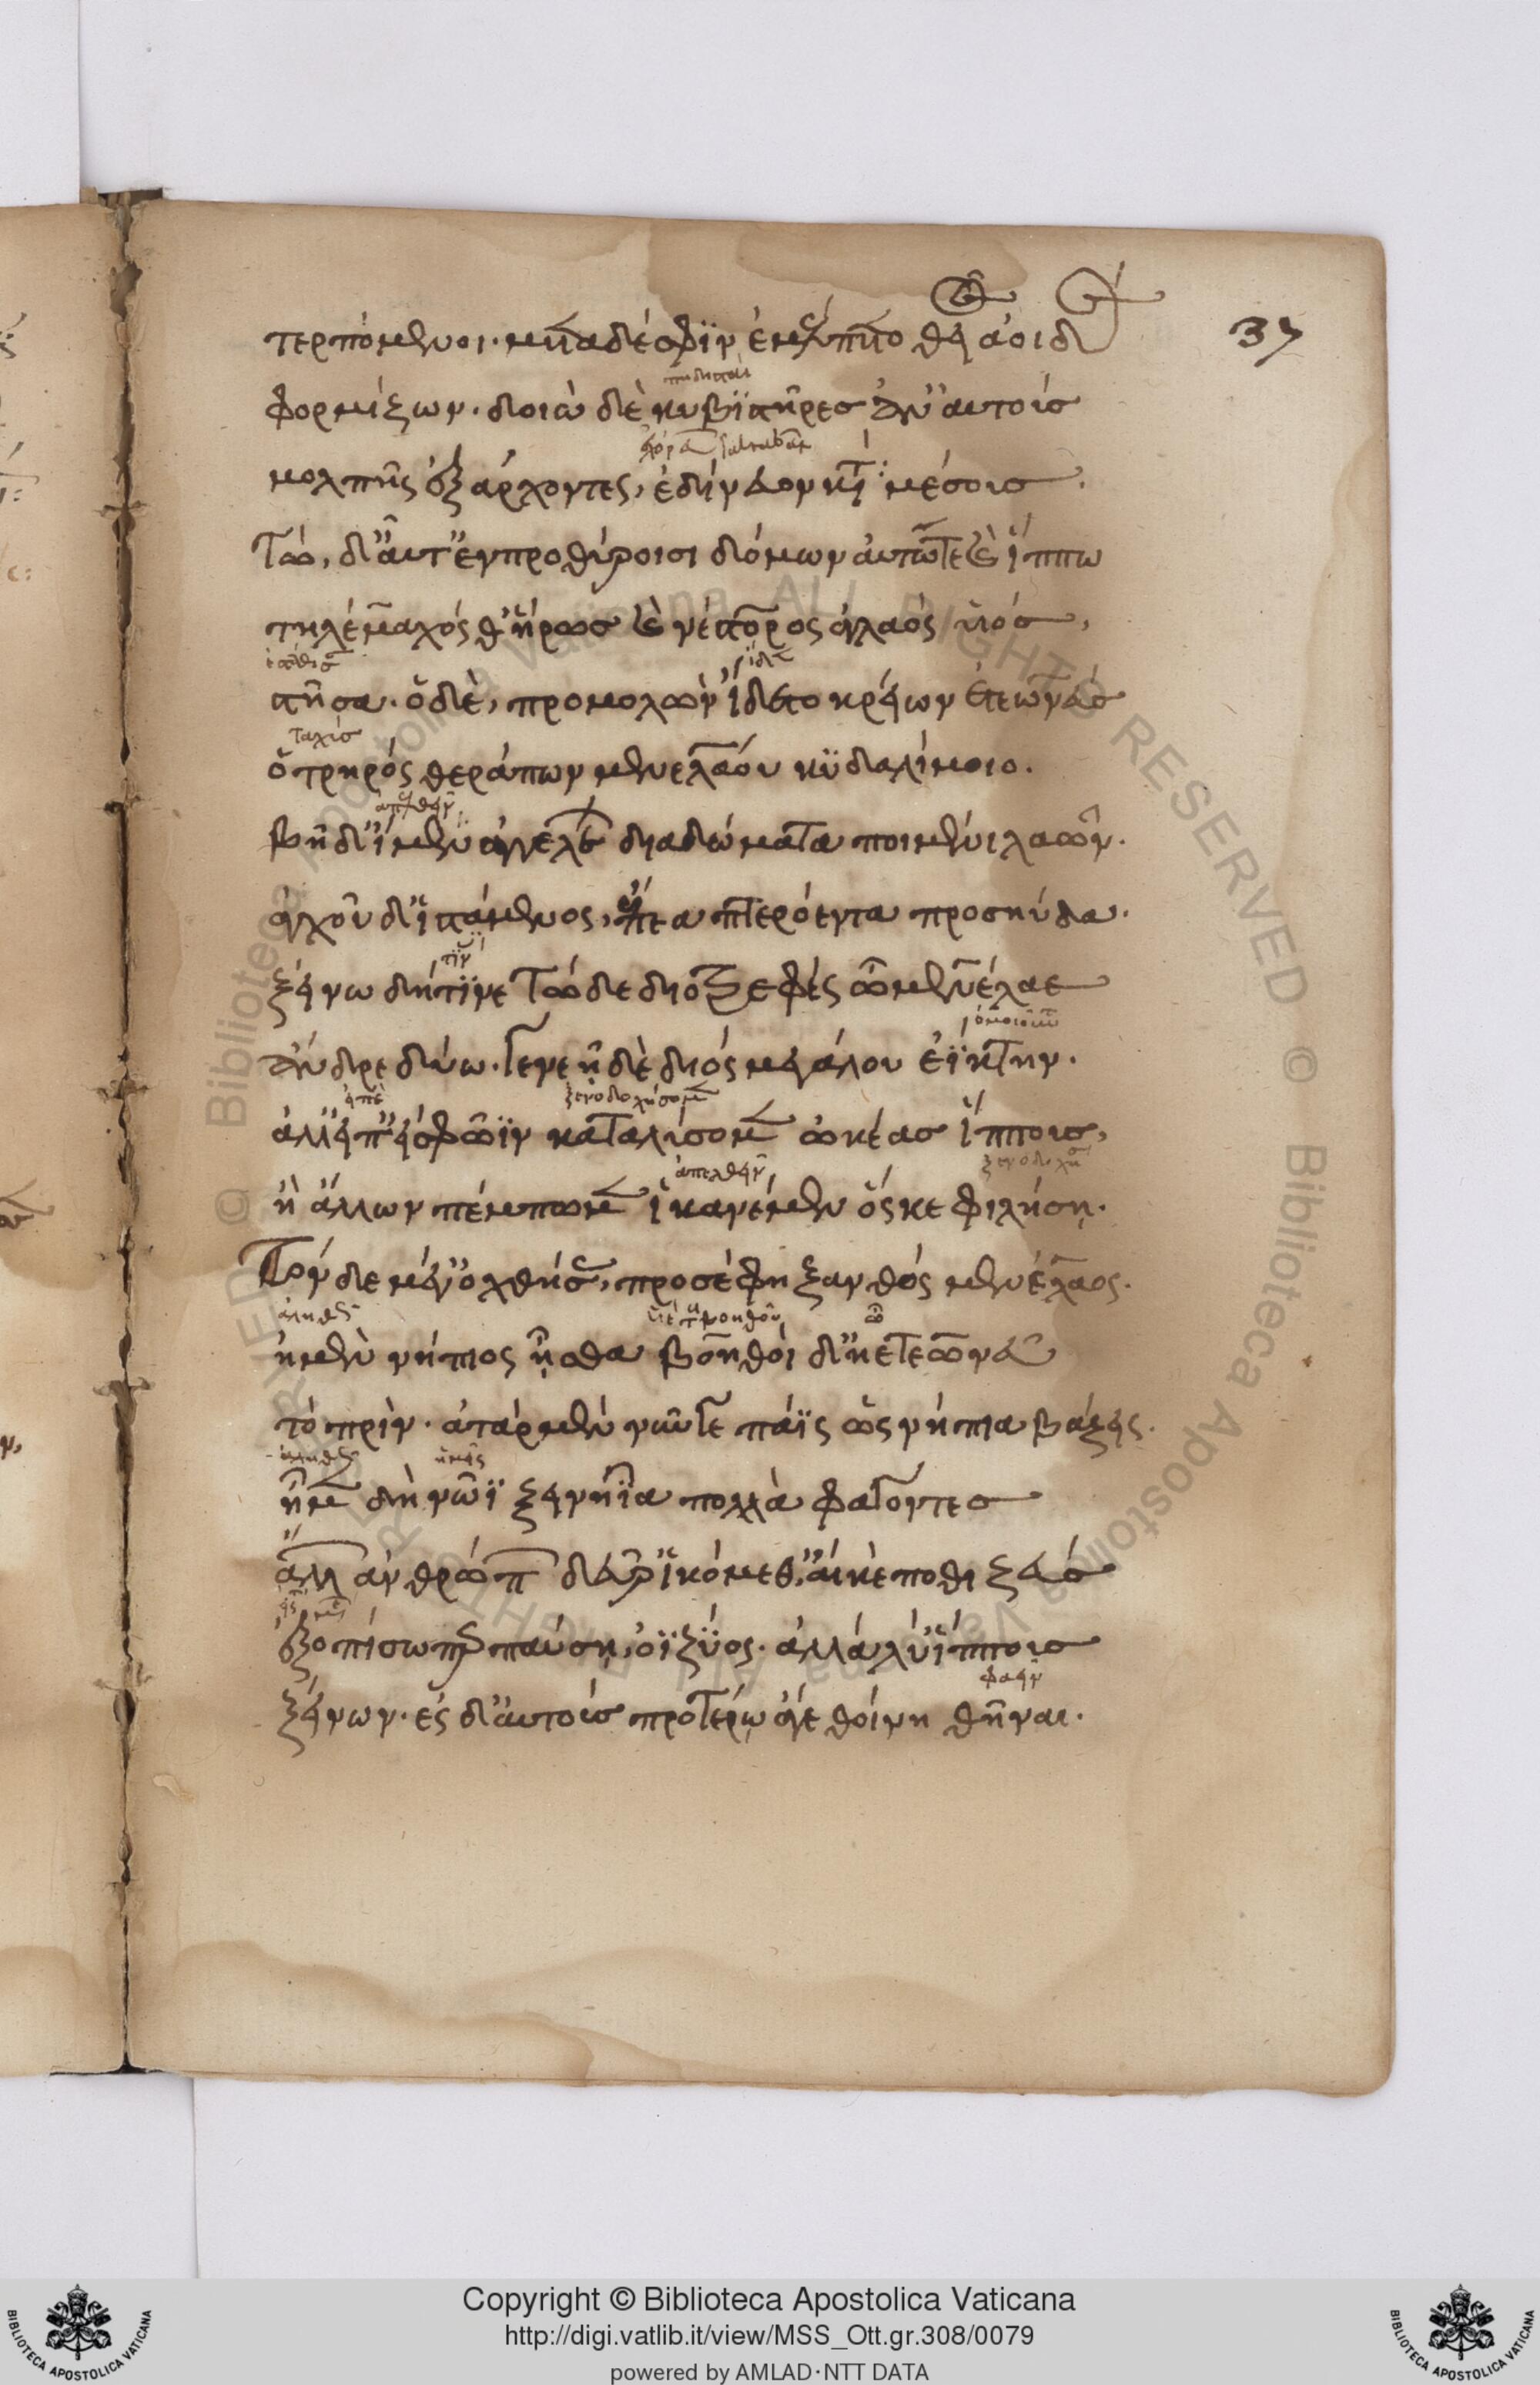 37
τερπόμενοι· μετὰ δέ σφϊν ἐμέλπετο θεῖος ἀοιδὸς
πηδηταὶ
φορμίζων· δοιὼ δὲ κυβϊστῆρες κατ' αὐτοὺς
saltabant
μολπῆς ἐξάρχοντες, ἐδίνευον κατὰ μέσους.
Τὼ, δ' αὖτ' ἐν προθύροισι δόμων αὐτώ τε καὶ ἵππω
τηλέμαχός θ' ἥρως καὶ νέστορος ἀγλαὸς υἱός,
στῆσαν· ὁ δὲ, προμολὼν ἴδετο κρείων ἐτεωνεὺς
ταχὺς
ὀτρηρὸς θεράπων μενελάου κϋδαλίμοιο.
βῆ δ' ἴμεν ἀγγελέων διὰ δώματα ποιμένι λαῶν.
ἀγχοῦ δ' ἱστάμενος, ἔπεα πτερόεντα προσηύδα.
ξείνω δή τϊνε Τώδε διοτρεφὲς ὦ μενέλαε
ἄνδρε δύω. γενεῇ δὲ διὸς μεγάλου ἔϊκτην.
εἰπὲ ξενοδοχήσομεν
ἀλλ' εἴπ' εἰ σφῶϊν καταλύσομεν ὠκέας ἵππους,
ἀπελθεῖν
ἢ ἄλλων πέμπωμεν ἱκανέμεν ὅς κε φιλήσῃ.
Τὸν δὲ μέγ' ὀχθήσας, προσέφη ξανθὸς μενέλαος.
οὐ μὲν νήπιος ἦσθα βοηθοΐδη ἐτεωνεῦ
τὸ πρίν· ἀτὰρ μὲν νῦν γε πάϊς ὣς νήπια βάζεις.
ἡμεῖς
ἦ μὲν δὴ νῶϊ ξεινήϊα πολλὰ φαγόντες
ἄλλων ἀνθρώπων δεῦρ' ἱκόμεθ', αἴ κέ ποθι ζεὺς
ἐξοπίσω περ παύσῃ, ὀϊζύος. ἀλλὰ λύ' ἵππους
φαγεῖν
ξείνων. ἐς δ' αὐτοὺς προτέρω ἄγε θοινηθῆναι.
Copyright © Biblioteca Apostolica Vaticana
http://digi.vatlib.it/view/MSS_Ott.gr.308/0079
powered by AMLAD·NTT DATA